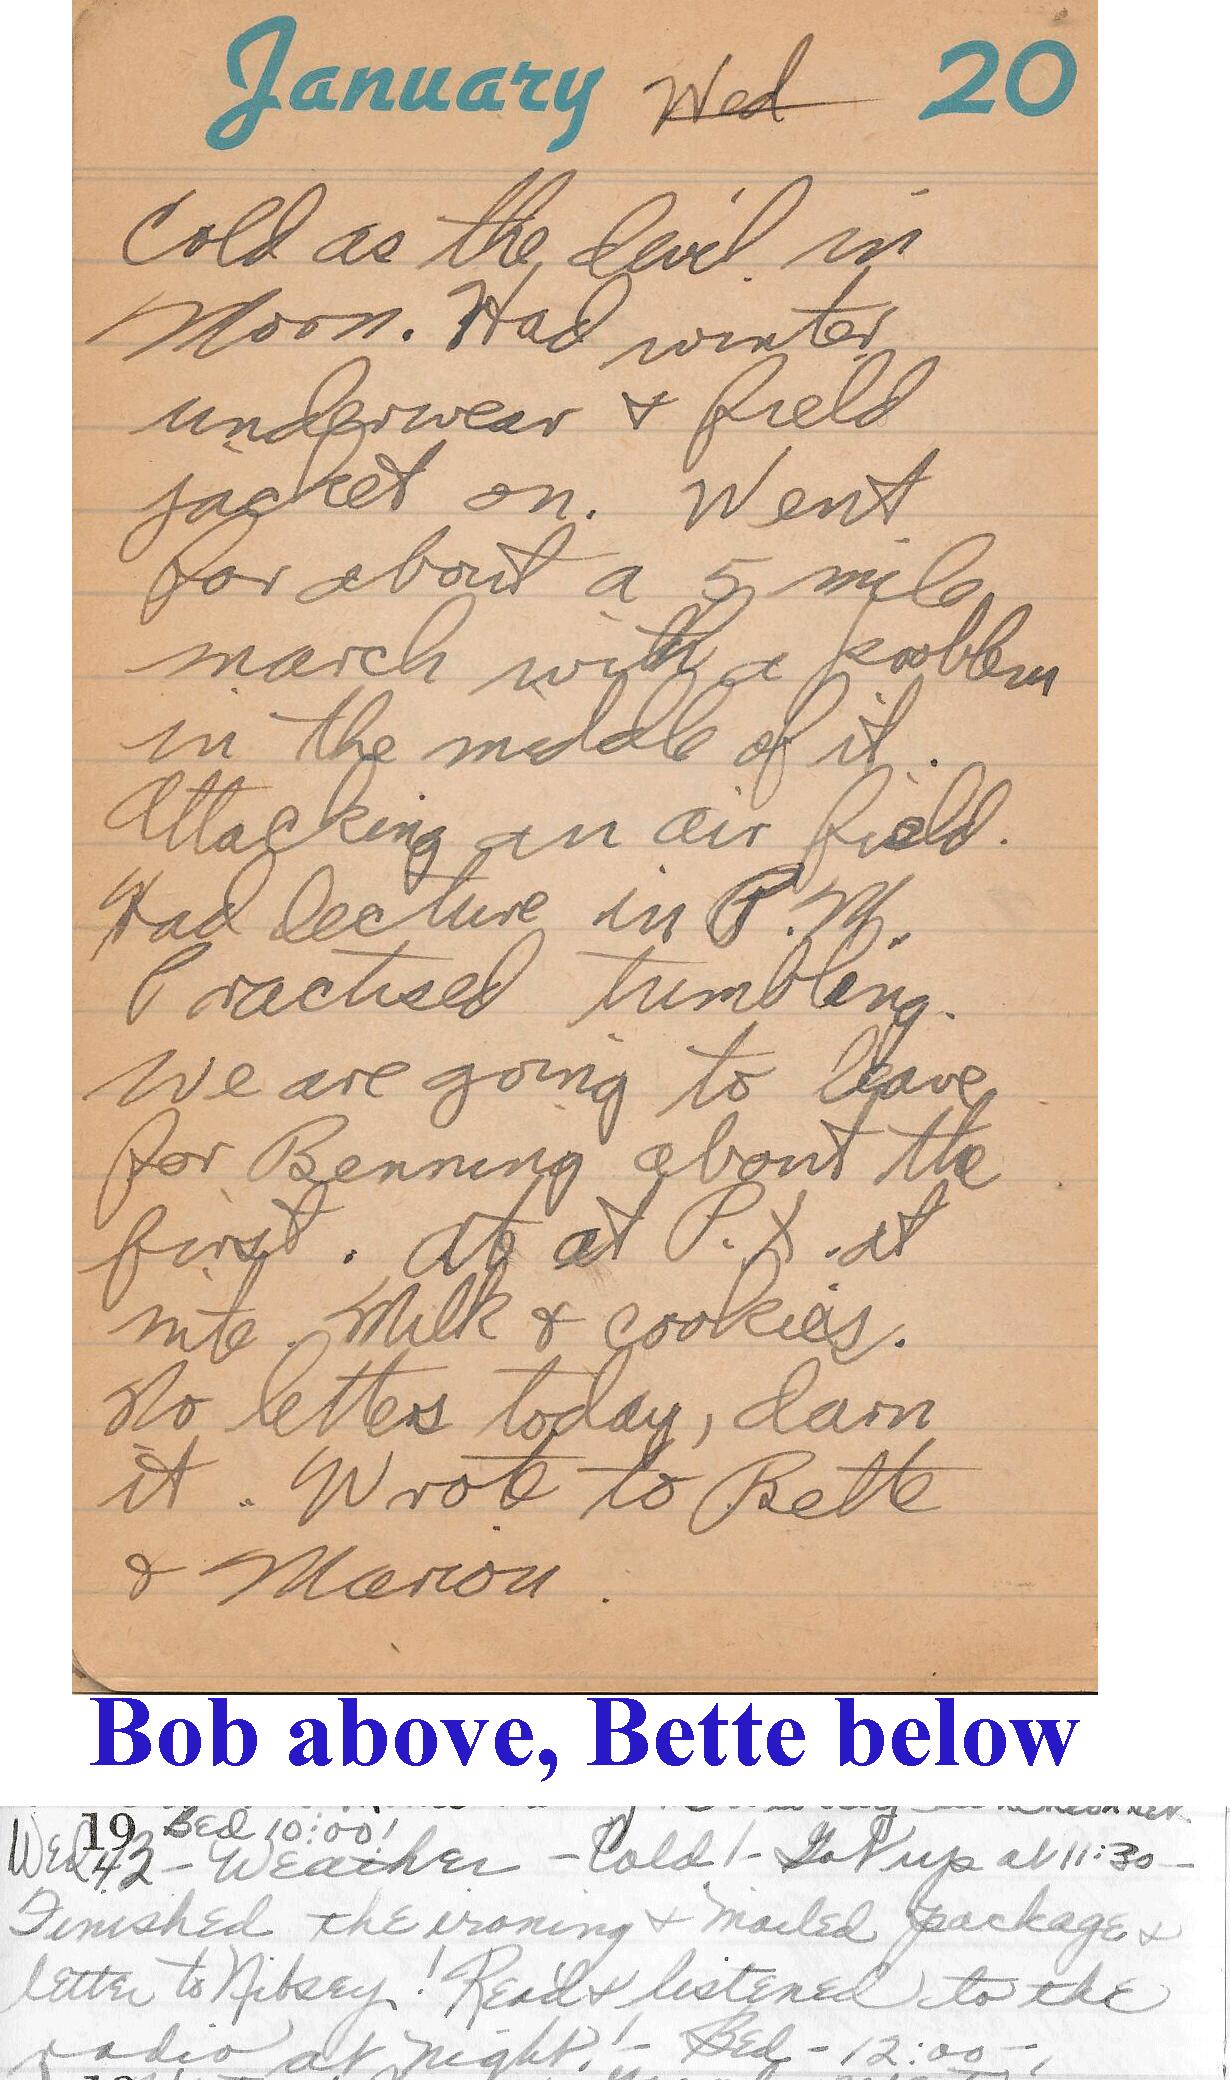 January Wed 20
Cold as the devil in
Morn. Had winter
underwear & field
jacket on. Went
for about a 5 mile
march with a problem
in the middle of it.
Attacking an air field.
Had lecture in P.M.
Practised tumbling.
We are going to leave
for Benning about the
first. Ate at P.X. at
nite. Milk & cookies.
No letters today, darn
it. Wrote to Bette
& Marion.
Bob above, Bette below
19 Bed 10:00!
Wed 43 - Weather - Cold! - Got up at 11:30 -
Finished the ironing & mailed package &
letter to Nibsey! Read & listened to the
radio at night! - Bed - 12:00 -